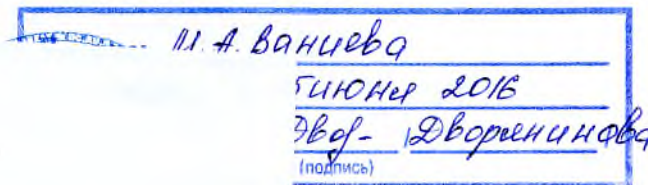 М. А. Ваниева
июня 2016
Двор- Дворянинова
(подпись)